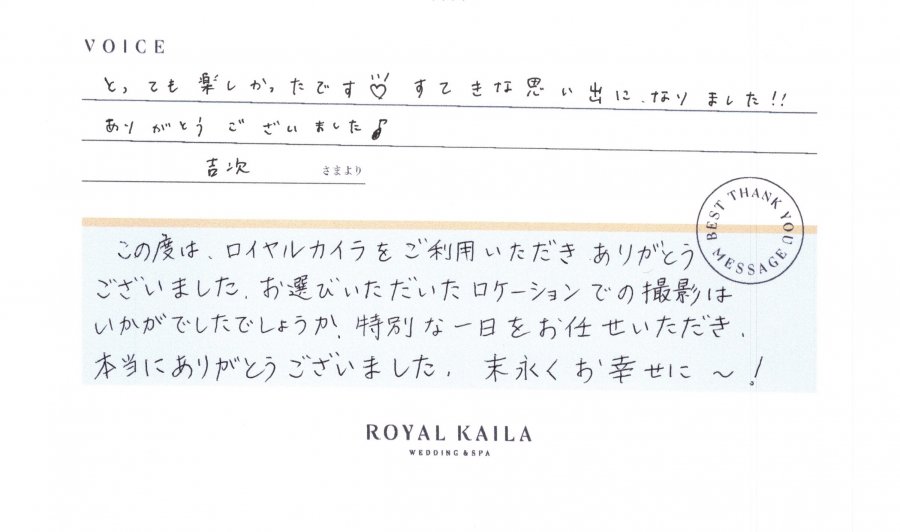 VOICE
とっても楽しかったです♡ すてきな思い出になりました!!
ありがとうございました♪
吉次 さまより
BEST THANK YOU MESSAGE
この度は、ロイヤルカイラをご利用いただき ありがとう
ございました。お選びいただいたロケーションでの撮影は
いかがでしたでしょうか。特別な一日をお任せいただき、
本当にありがとうございました。 末永くお幸せに〜!
ROYAL KAILA
WEDDING & SPA